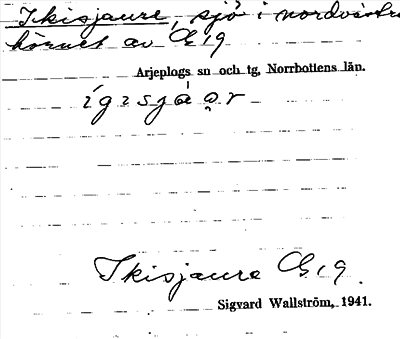 Ikisjaure, sjö i nordvästra
hörnet av G 19
Arjeplogs sn och tg, Norrbottens län.
Ikisjaure G 19.
Sigvard Wallström, 1941.